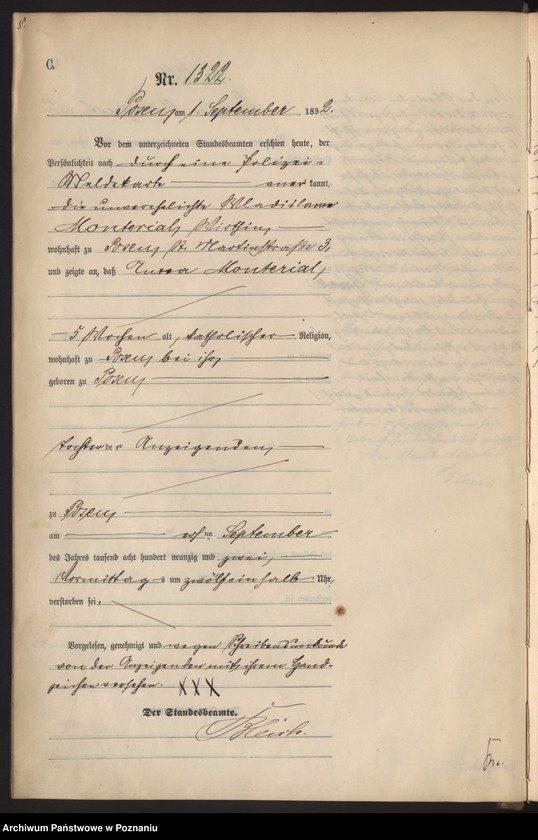 C.
Nr. 1322.
Posen, am 1. September 1892.
Vor dem unterzeichneten Standesbeamten erschien heute, der
Persönlichkeit nach durch eine Polizei-
Meldekarte anerkannt,
die unverehelichte Wladislawa
Monterial, Wirthin,
wohnhaft zu Posen, St. Martinstraße 3,
und zeigte an, daß Monterial,
5 Wochen alt, katholischer Religion,
wohnhaft zu Posen, bei ihr,
geboren zu Posen,
Tochter der Anzeigenden,
zu Posen,
am ersten September
des Jahres tausend acht hundert neunzig und zwei,
Vormittags um zwölfeinhalb Uhr,
verstorben sei.
Vorgelesen, genehmigt und wegen Schreibensunkunde
von der Anzeigenden mit ihrem Hand-
zeichen versehen. XXX
Der Standesbeamte.
Archiwum Państwowe w Poznaniu